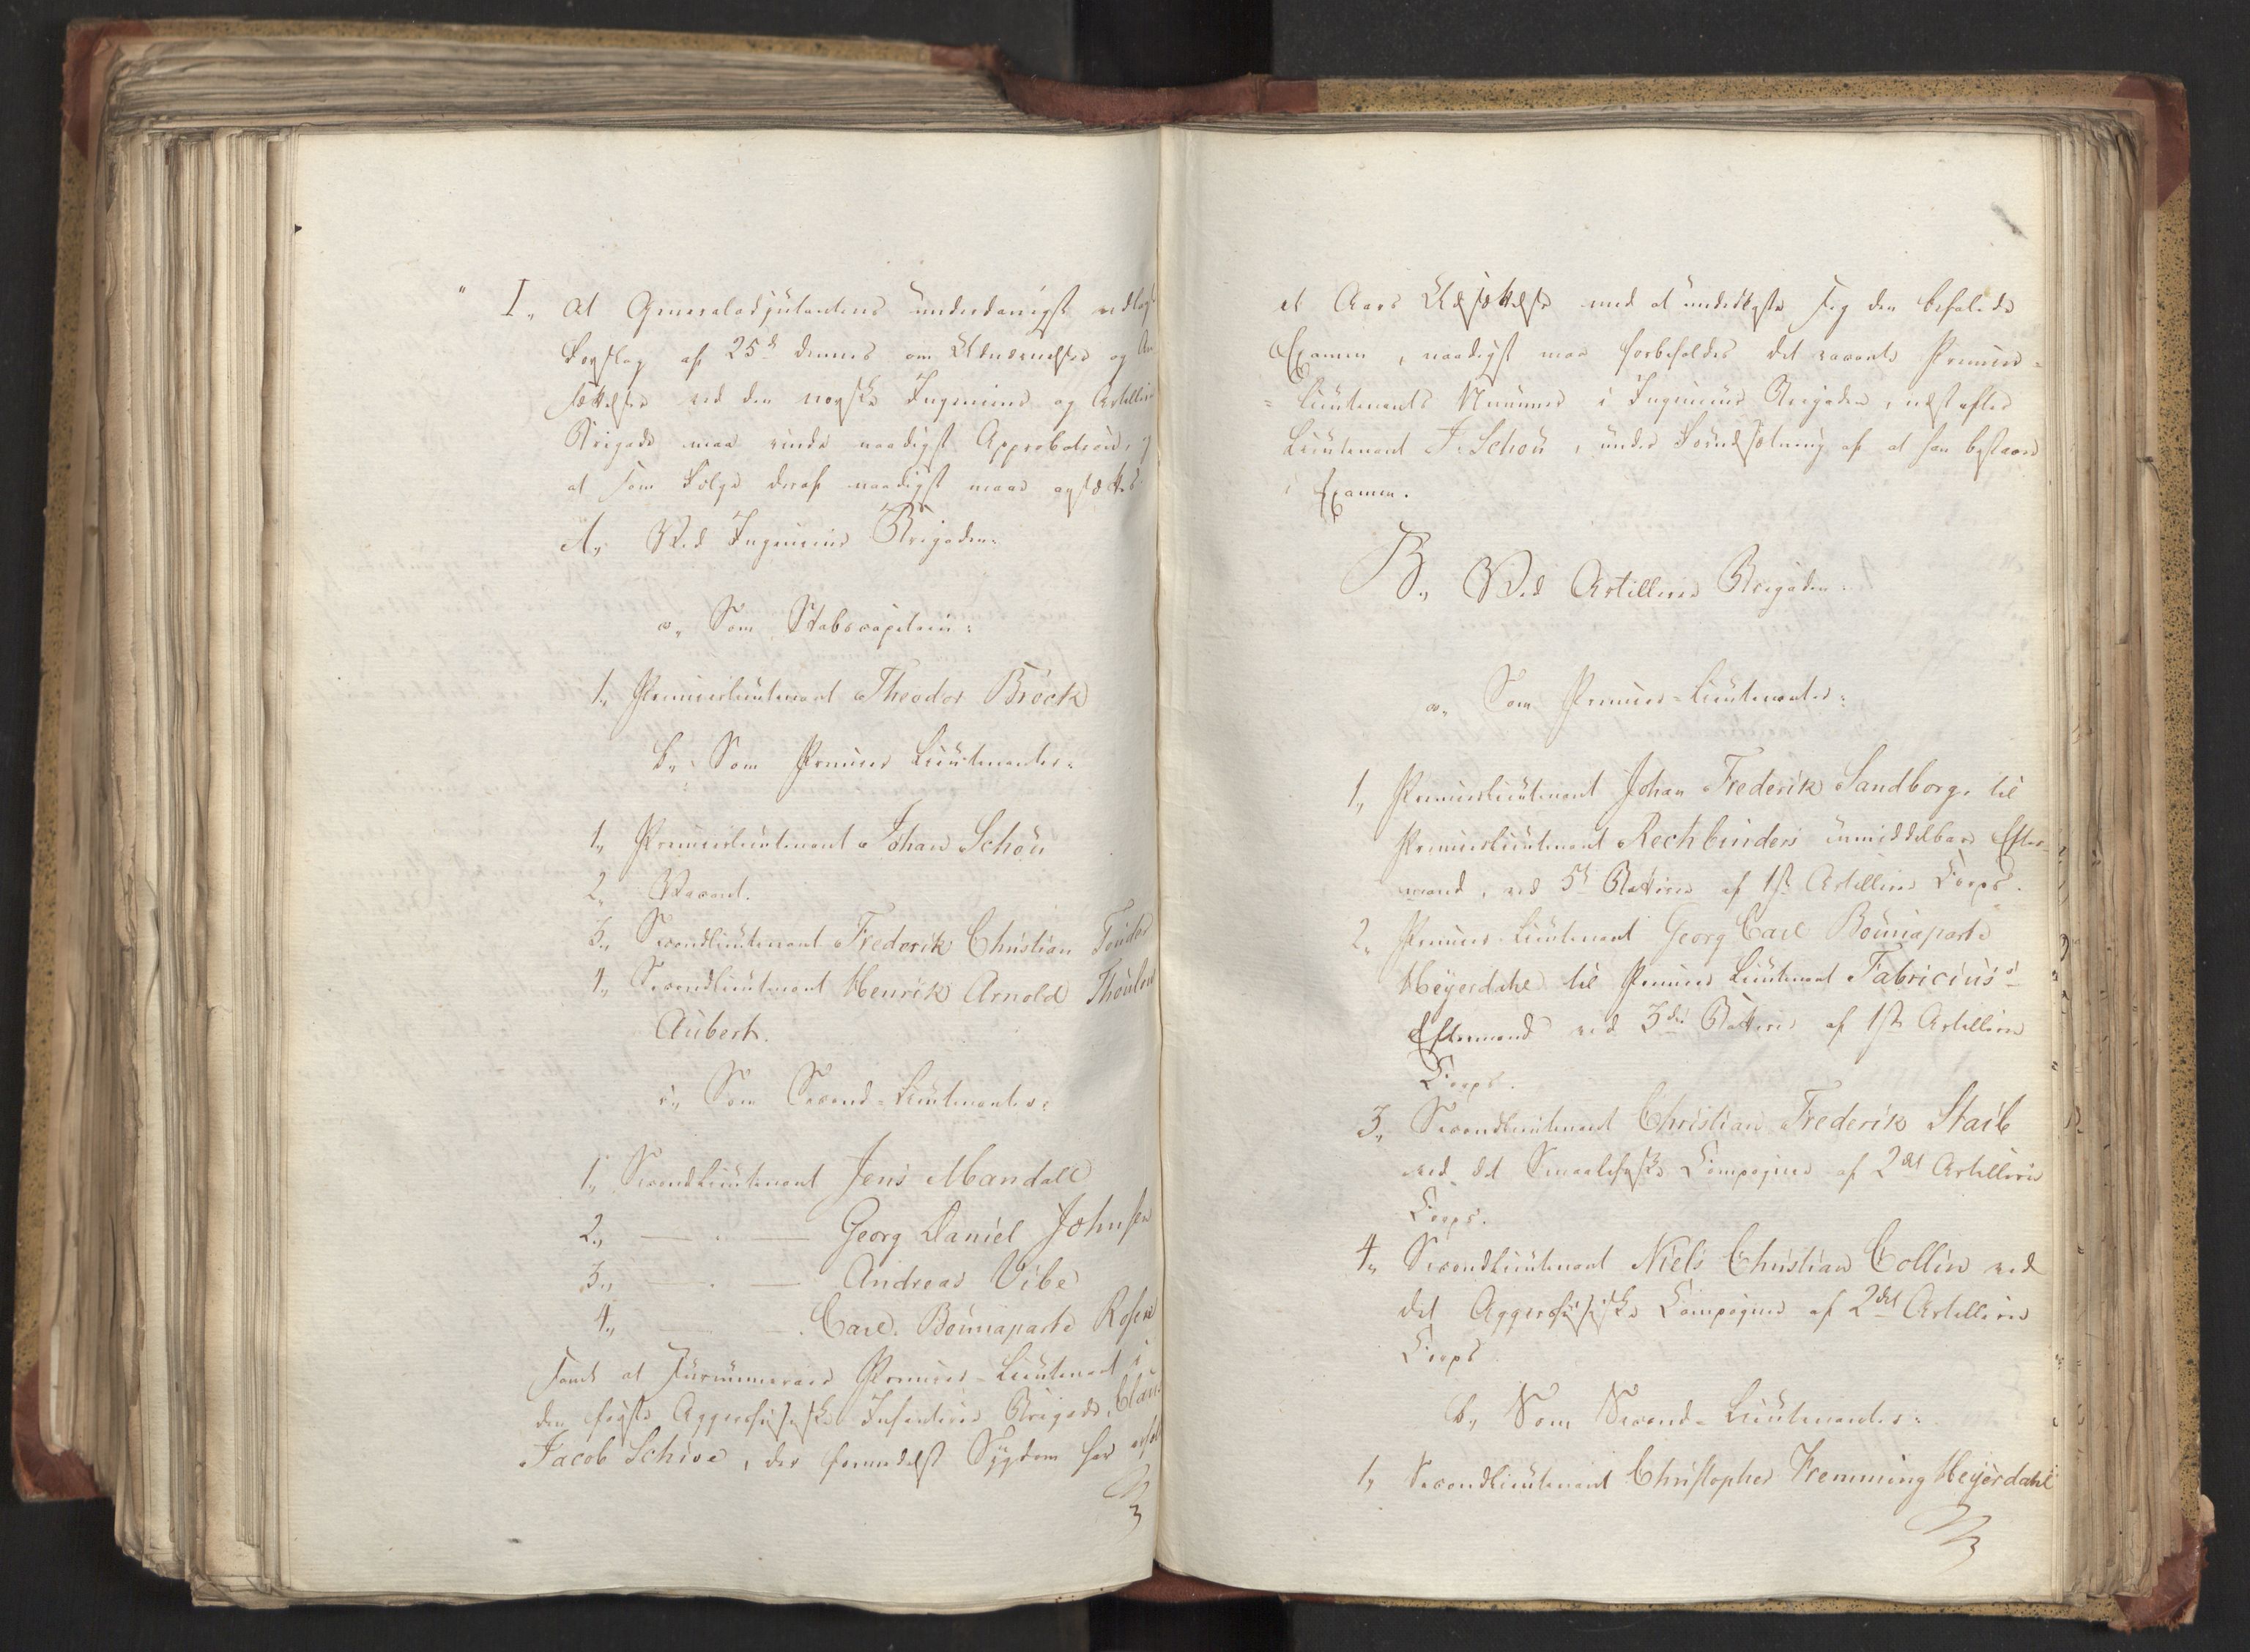 " I., at Generaladjutantens underdanigst
Forslag af 25de dennes om Udnævnelser og An
sættelser ved den norske Ingenieur og Artillerie
Brigade maa vinde naadigst Approbation,
at som Følge deraf naadigst maae ansættes
A., Ved Ingenieur Brigaden.
a., Som Stabscapitain:
1., Premierlieutenant Theodor Broch
b., Som Premier Lieutenanter:
1., Premierlieutenant Johan Schou
2., Vacant.
3., Secondlieutenant Frederik Christian
4., Secondlieutenant Henrik Arnold Thaulow
Aubert.
c., Som Second-Lieutenanter:
1., Secondlieutenant Jens Mandall
2., — . — Georg Daniel Johnsen
3., — . — Andreas Vibe
4., — — . Carl Bounaparte Rosen
samt at Surnumerair Premier-Lieutenant i
den første Aggershusiske Infanterie Brigade, Claus
Jacob Schive, der formedelst Sygdom har
et Aars Udsættelse med at underkaste sig den befalede
Examen, naadigst maa forbeholdes det vacante Premier-
-Lieutenants Nummer i Ingenieur Brigaden, næst efter
Lieutenant J. Schou, under Forudsætning af at han bestaaer
i Examen.
B., Ved Artillerie Brigaden:
a., Som Premier-Lieutenanter:
1., Premierlieutenant Johan Frederik Sandborg, til
Premierlieutenant Rechbinders umiddelbare Efter-
mand, ved 5te Batterie af 1ste Artillerie Corps.
2., Premier-Lieutenant Georg Carl Bounaparte
Heyerdahl til Premier Lieutenant Fabricius's
Eftermand ved 3die Batterie af 1ste Artillerie
Corps.
3., Secondlieutenant Christian Frederik Staib
ved det Smaalehnske Compagnie af 2det Artillerie
Corps.
4., Secondlieutenant Niels Christian Collin ved
det Aggershusiske Compagnie af 2det Artillerie
Corps
b., Som Second-Lieutenanter:
1., Secondlieutenant Christopher Fremming Heyerdahl